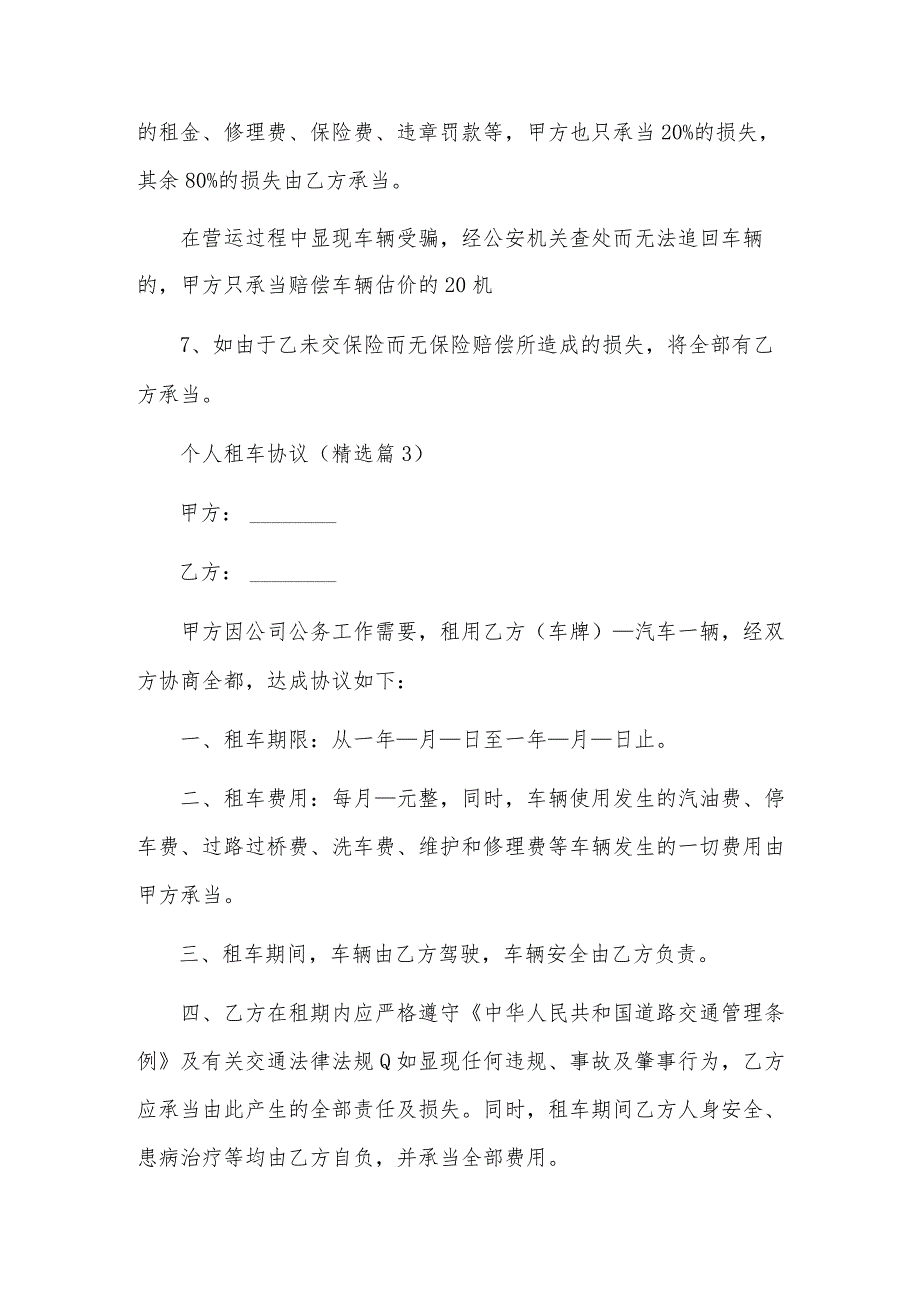 的租金、修理费、保险费、违章罚款等，甲方也只承当20%的损失，
其余80%的损失由乙方承当。
在营运过程中显现车辆受骗，经公安机关查处而无法追回车辆
的，甲方只承当赔偿车辆估价的20机
7、如由于乙未交保险而无保险赔偿所造成的损失，将全部有乙
方承当。
个人租车协议（精选篇3）
甲方： ________
乙方： ________
甲方因公司公务工作需要，租用乙方（车牌）—汽车一辆，经双
方协商全都，达成协议如下：
一、租车期限：从一年—月—日至一年—月—日止。
二、租车费用：每月—元整，同时，车辆使用发生的汽油费、停
车费、过路过桥费、洗车费、维护和修理费等车辆发生的一切费用由
甲方承当。
三、租车期间，车辆由乙方驾驶，车辆安全由乙方负责。
四、乙方在租期内应严格遵守《中华人民共和国道路交通管理条
例》及有关交通法律法规Q如显现任何违规、事故及肇事行为，乙方
应承当由此产生的全部责任及损失。同时，租车期间乙方人身安全、
患病治疗等均由乙方自负，并承当全部费用。